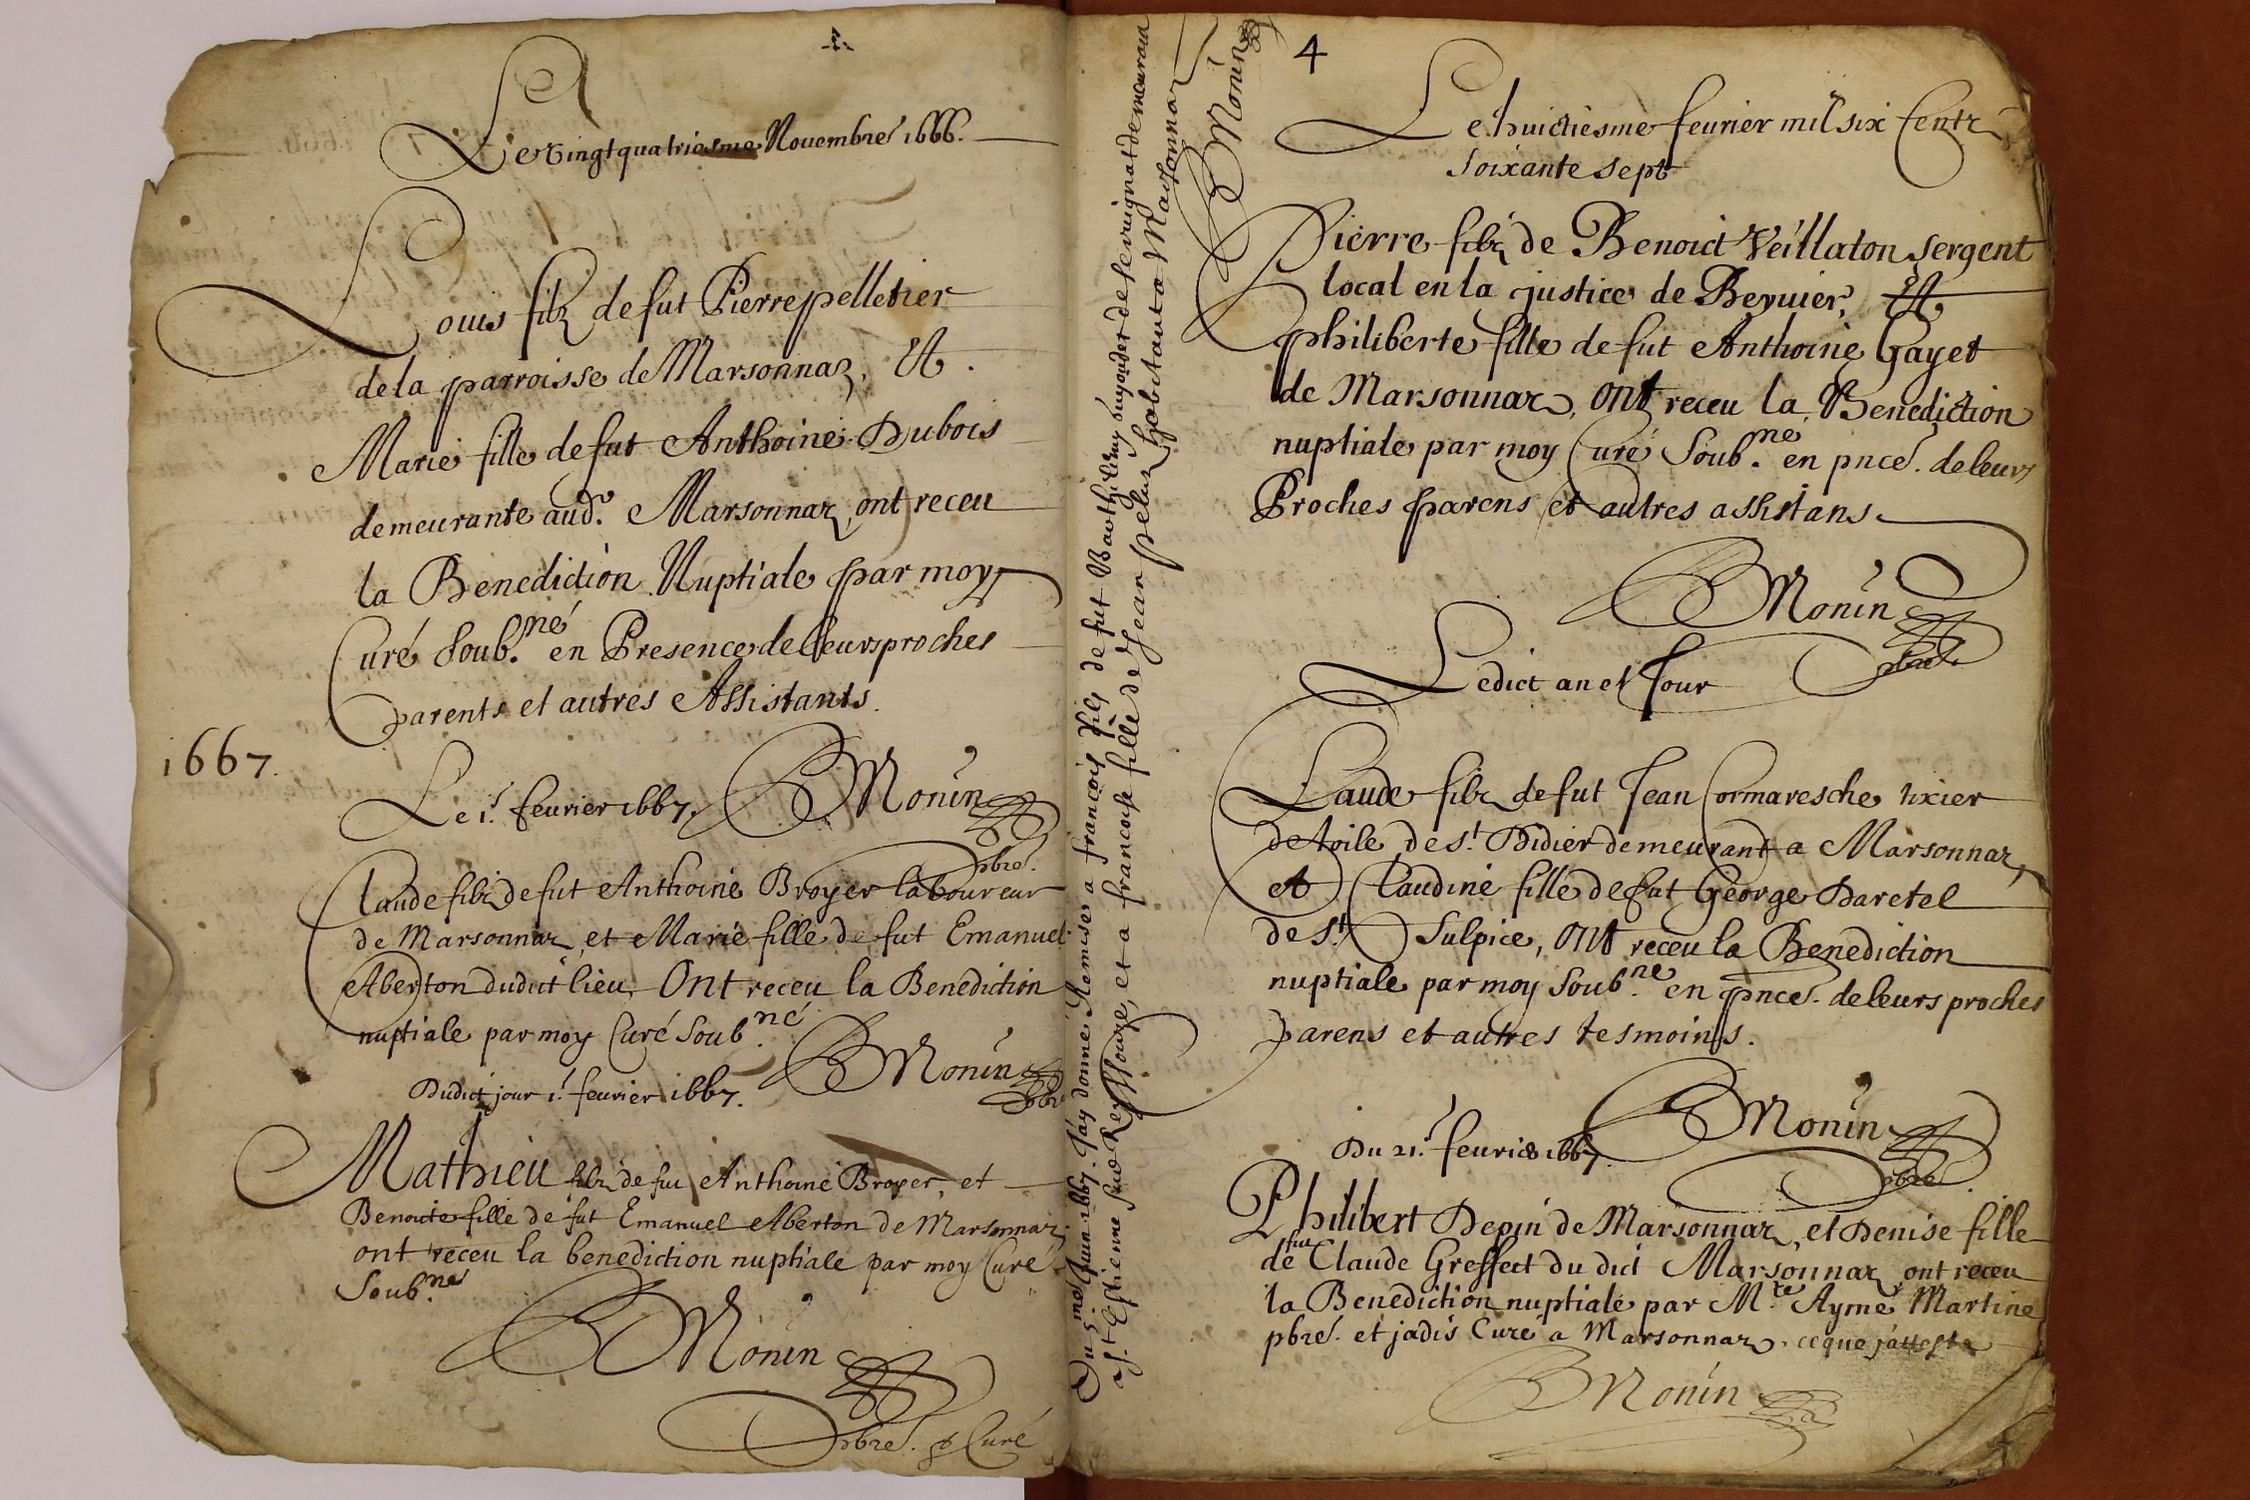 Le vingtquatriesme Novembre 1666.
Louis filz de fut Pierre pelletier
de la parroisse de Marsonnaz, Et
Marie fille de fut Anthoine Dubois
demeurante aud.^t Marsonnaz, ont receu
la Benediction Nuptiale par moy
Curé Soub.^né en Presence de leurs proches
parents et autres Assistants.
1667.
Le 1.^r feurier 1667.
BMonin
pbre.
Claude filz de fut Anthoine Broyer laboureur
de Marsonnaz, et Marie fille de fut Emanuel
Aberton dudict lieu, Ont receu la Benediction
nuptiale par moy Curé Soub.^né
BMonin
pbre
Dudict jour 1.^r feurier 1667.
Mathieu filz de fut Anthoine Broyer, et
Benoicte fille de fut Emanuel Aberton de Marsonnaz
ont receu la benediction nuptiale par moy Curé
Soub.^né
BMonin
pbre. & Curé
Du 5.^me Juin 1667. J'ay donné Remise a francois filz de fut Barthelemy suyonder de servignat demeurant
a S.^t Estienne sus Reyssouze, et a francoise fille de Jean pelus habitant a Marsonnaz
BMonin
4
Le huictiesme feurier mil six Centz
Soixante Sept
Pierre filz de Benoict Veillaton Sergent
local en la justice de Beyuier, Et
philiberte fille de fut Anthoine Gayet
de Marsonnaz, ont receu la Benediction
nuptiale par moy Curé Soub.^né en pnce. de leurs
Proches parens et autres assistans
BMonin
pbre
Ledict an et Jour
Claude filz de fut Jean Cormaresche tixier
de toile de S.^t Didier demeurant a Marsonnaz,
et Claudine fille de fut George Daretel
de S.^t Sulpice, ont receu la Benediction
nuptiale par moy Soub.^né en pnce. de leurs proches
parens et autres tesmoins.
BMonin
pbre.
Du 21.^r feurier 1667.
Philibert Depin de Marsonnaz, et Denise fille
de fut Claude Greffect du dict Marsonnaz ont receu
la Benediction nuptiale par M.^re Aymé Martine
pbre. et jadis Curé a Marsonnaz, ce que j'atteste
BMonin